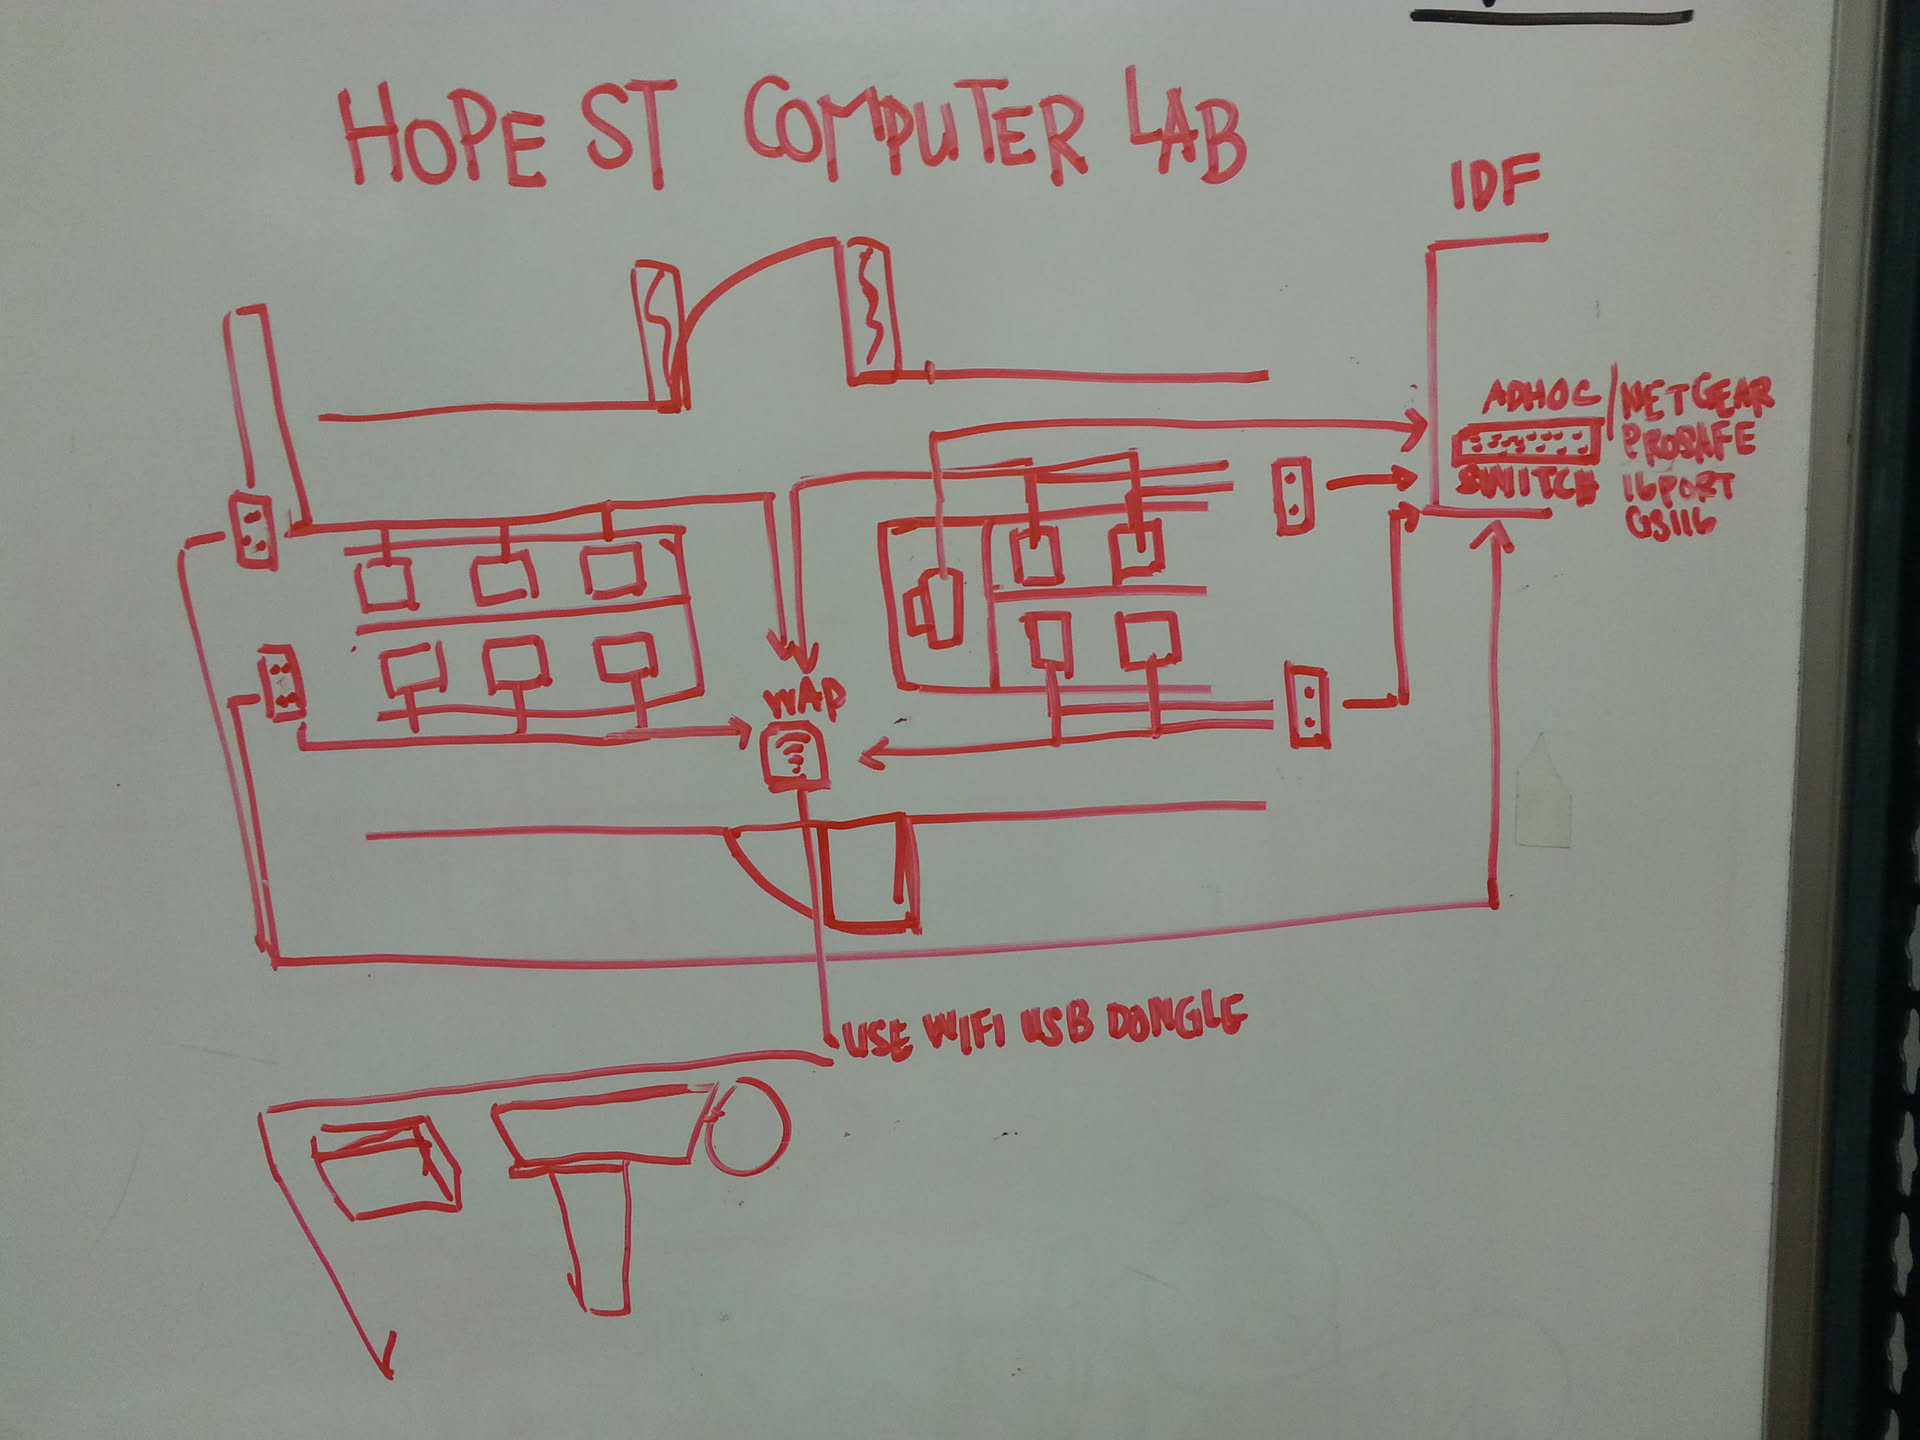 HOPE ST COMPUTER LAB
IDF
ADHOC / NETGEAR
PROSAFE
SWITCH 16PORT
GS116
WAP
USE WIFI USB DONGLE